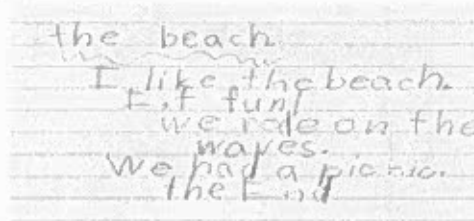 the beach
I like the beach.
It,s fun!
we ride on the
waves.
We had a picnic.
the End